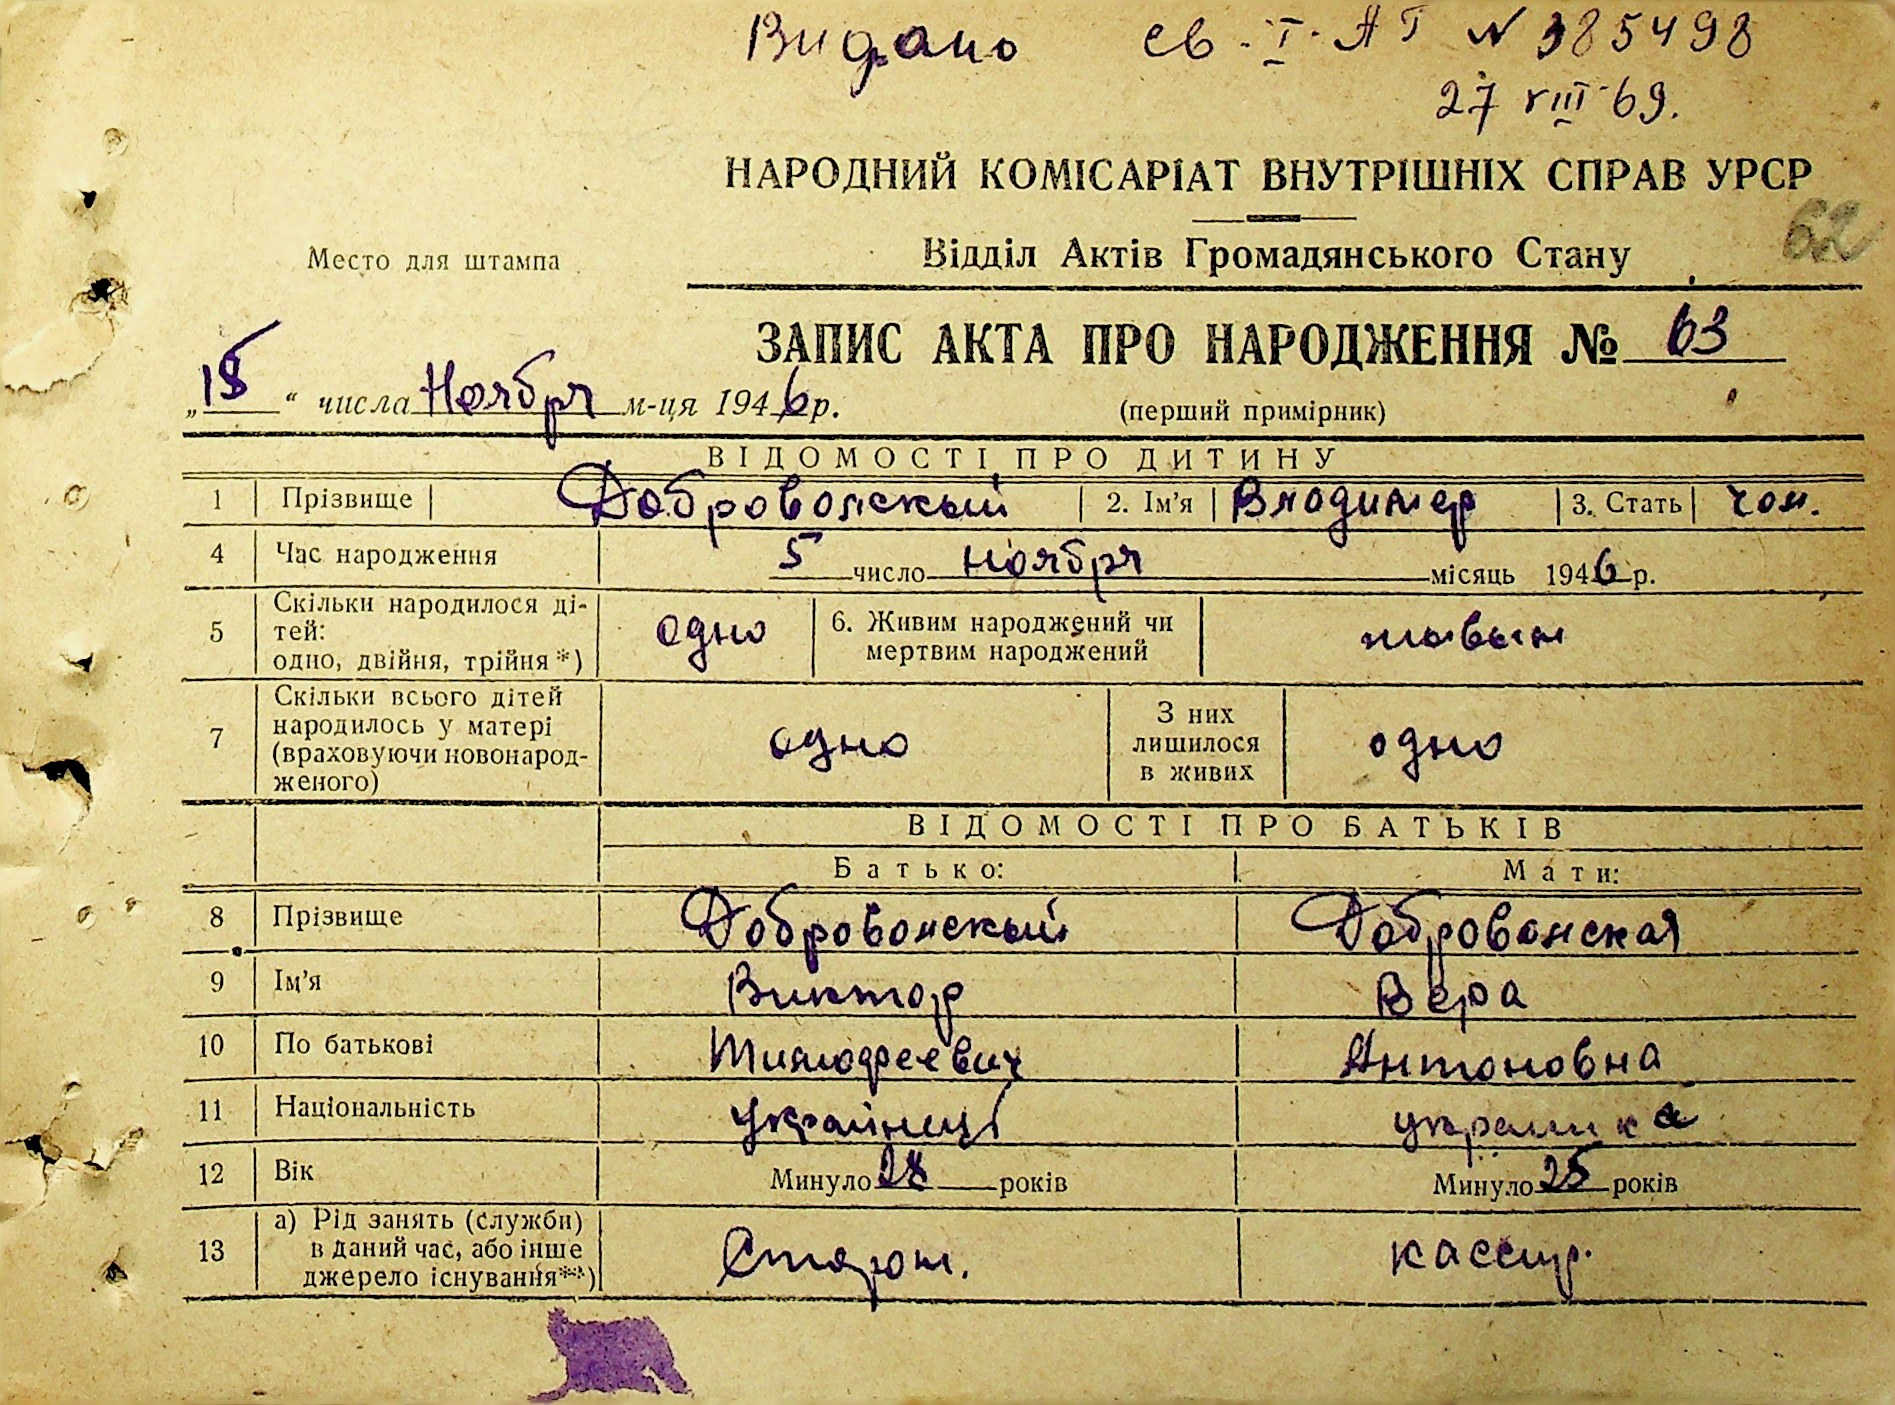 Видано св. I. АГ N 385498
27 VIII 69.
НАРОДНИЙ КОМІСАРІАТ ВНУТРІШНІХ СПРАВ УРСР
62
Место для штампа
Відділ Актів Громадянського Стану
ЗАПИС АКТА ПРО НАРОДЖЕННЯ № 63
„15“ числа Ноября м-ця 1946 р.
(перший примірник)
ВІДОМОСТІ ПРО ДИТИНУ
1 Прізвище Добровольский 2. Ім'я Владимер 3. Стать чол.
4 Час народження 5 число ноября місяць 1946 р.
5 Скільки народилося ді-
тей:
одно, двійня, трійня *)
одно
6. Живим народжений чи
мертвим народжений
живым
7 Скільки всього дітей
народилось у матері
(враховуючи новонарод-
женого)
одно
З них
лишилося
в живих
одно
ВІДОМОСТІ ПРО БАТЬКІВ
Батько: Мати:
8 Прізвище Добровольский Добровольская
9 Ім'я Виктор Вера
10 По батькові Тимофеевич Антоновна
11 Національність Антоновна